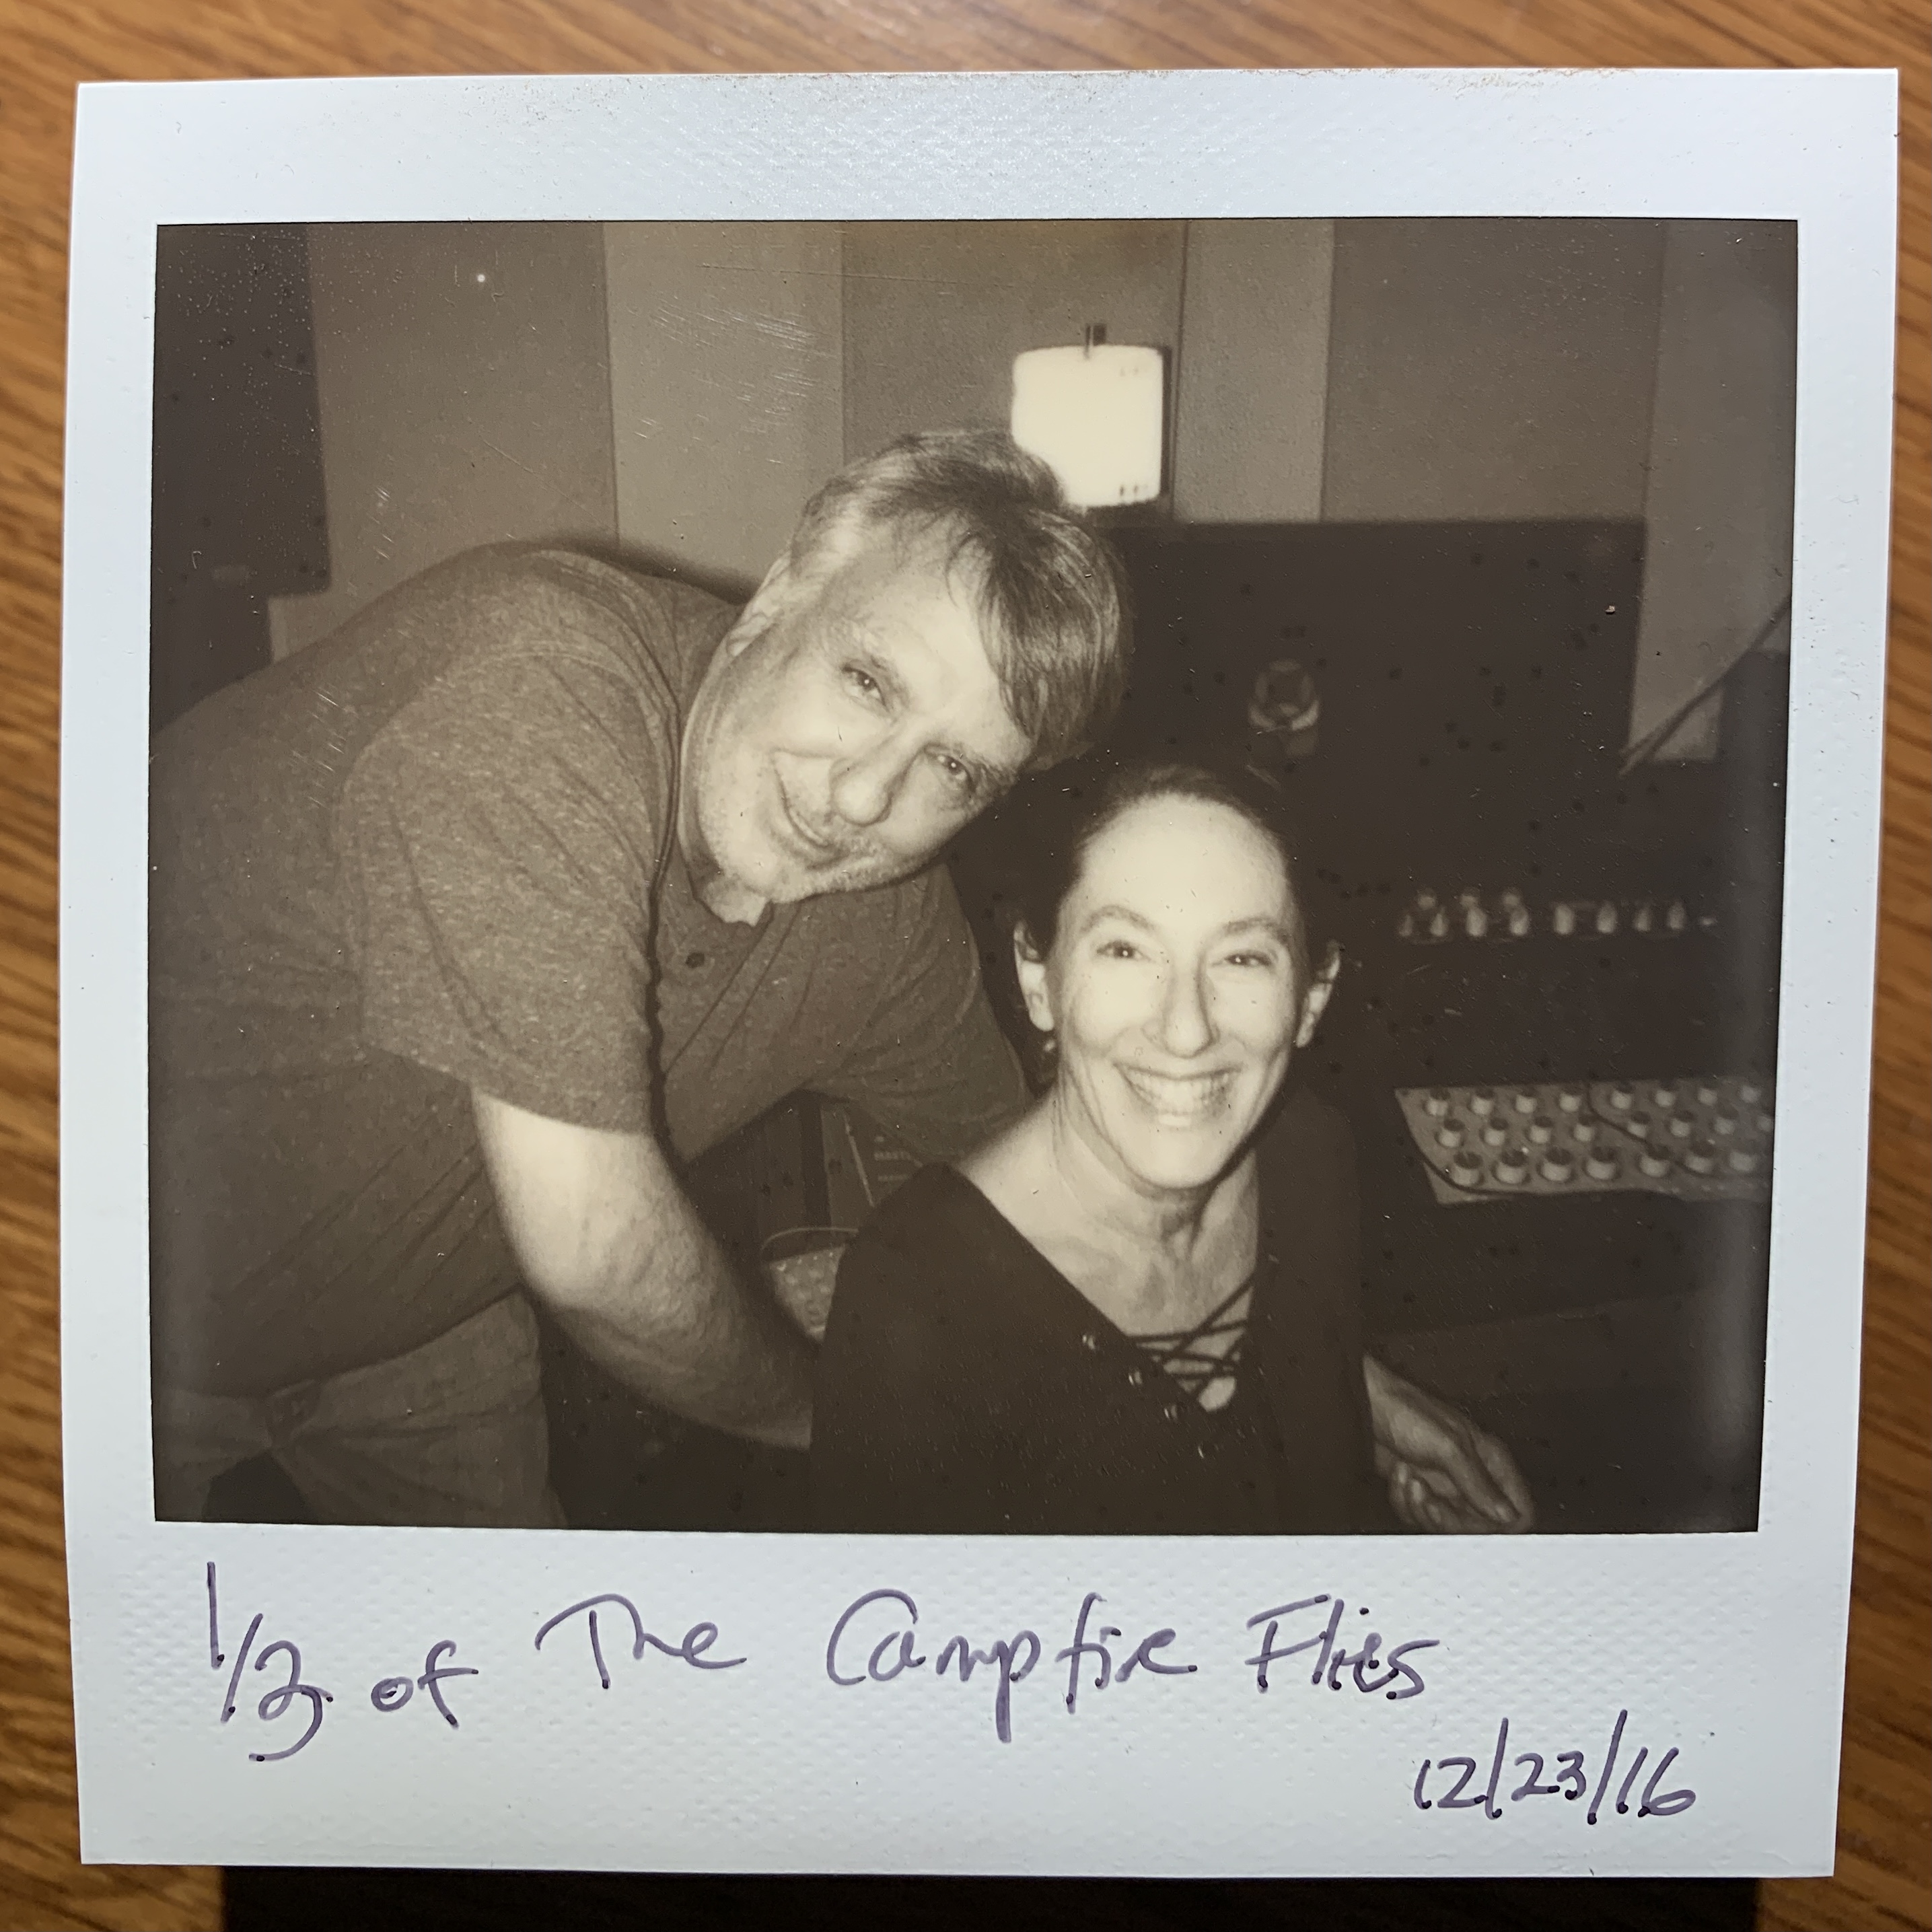 1/3 of The Campfire Flies
12/23/16